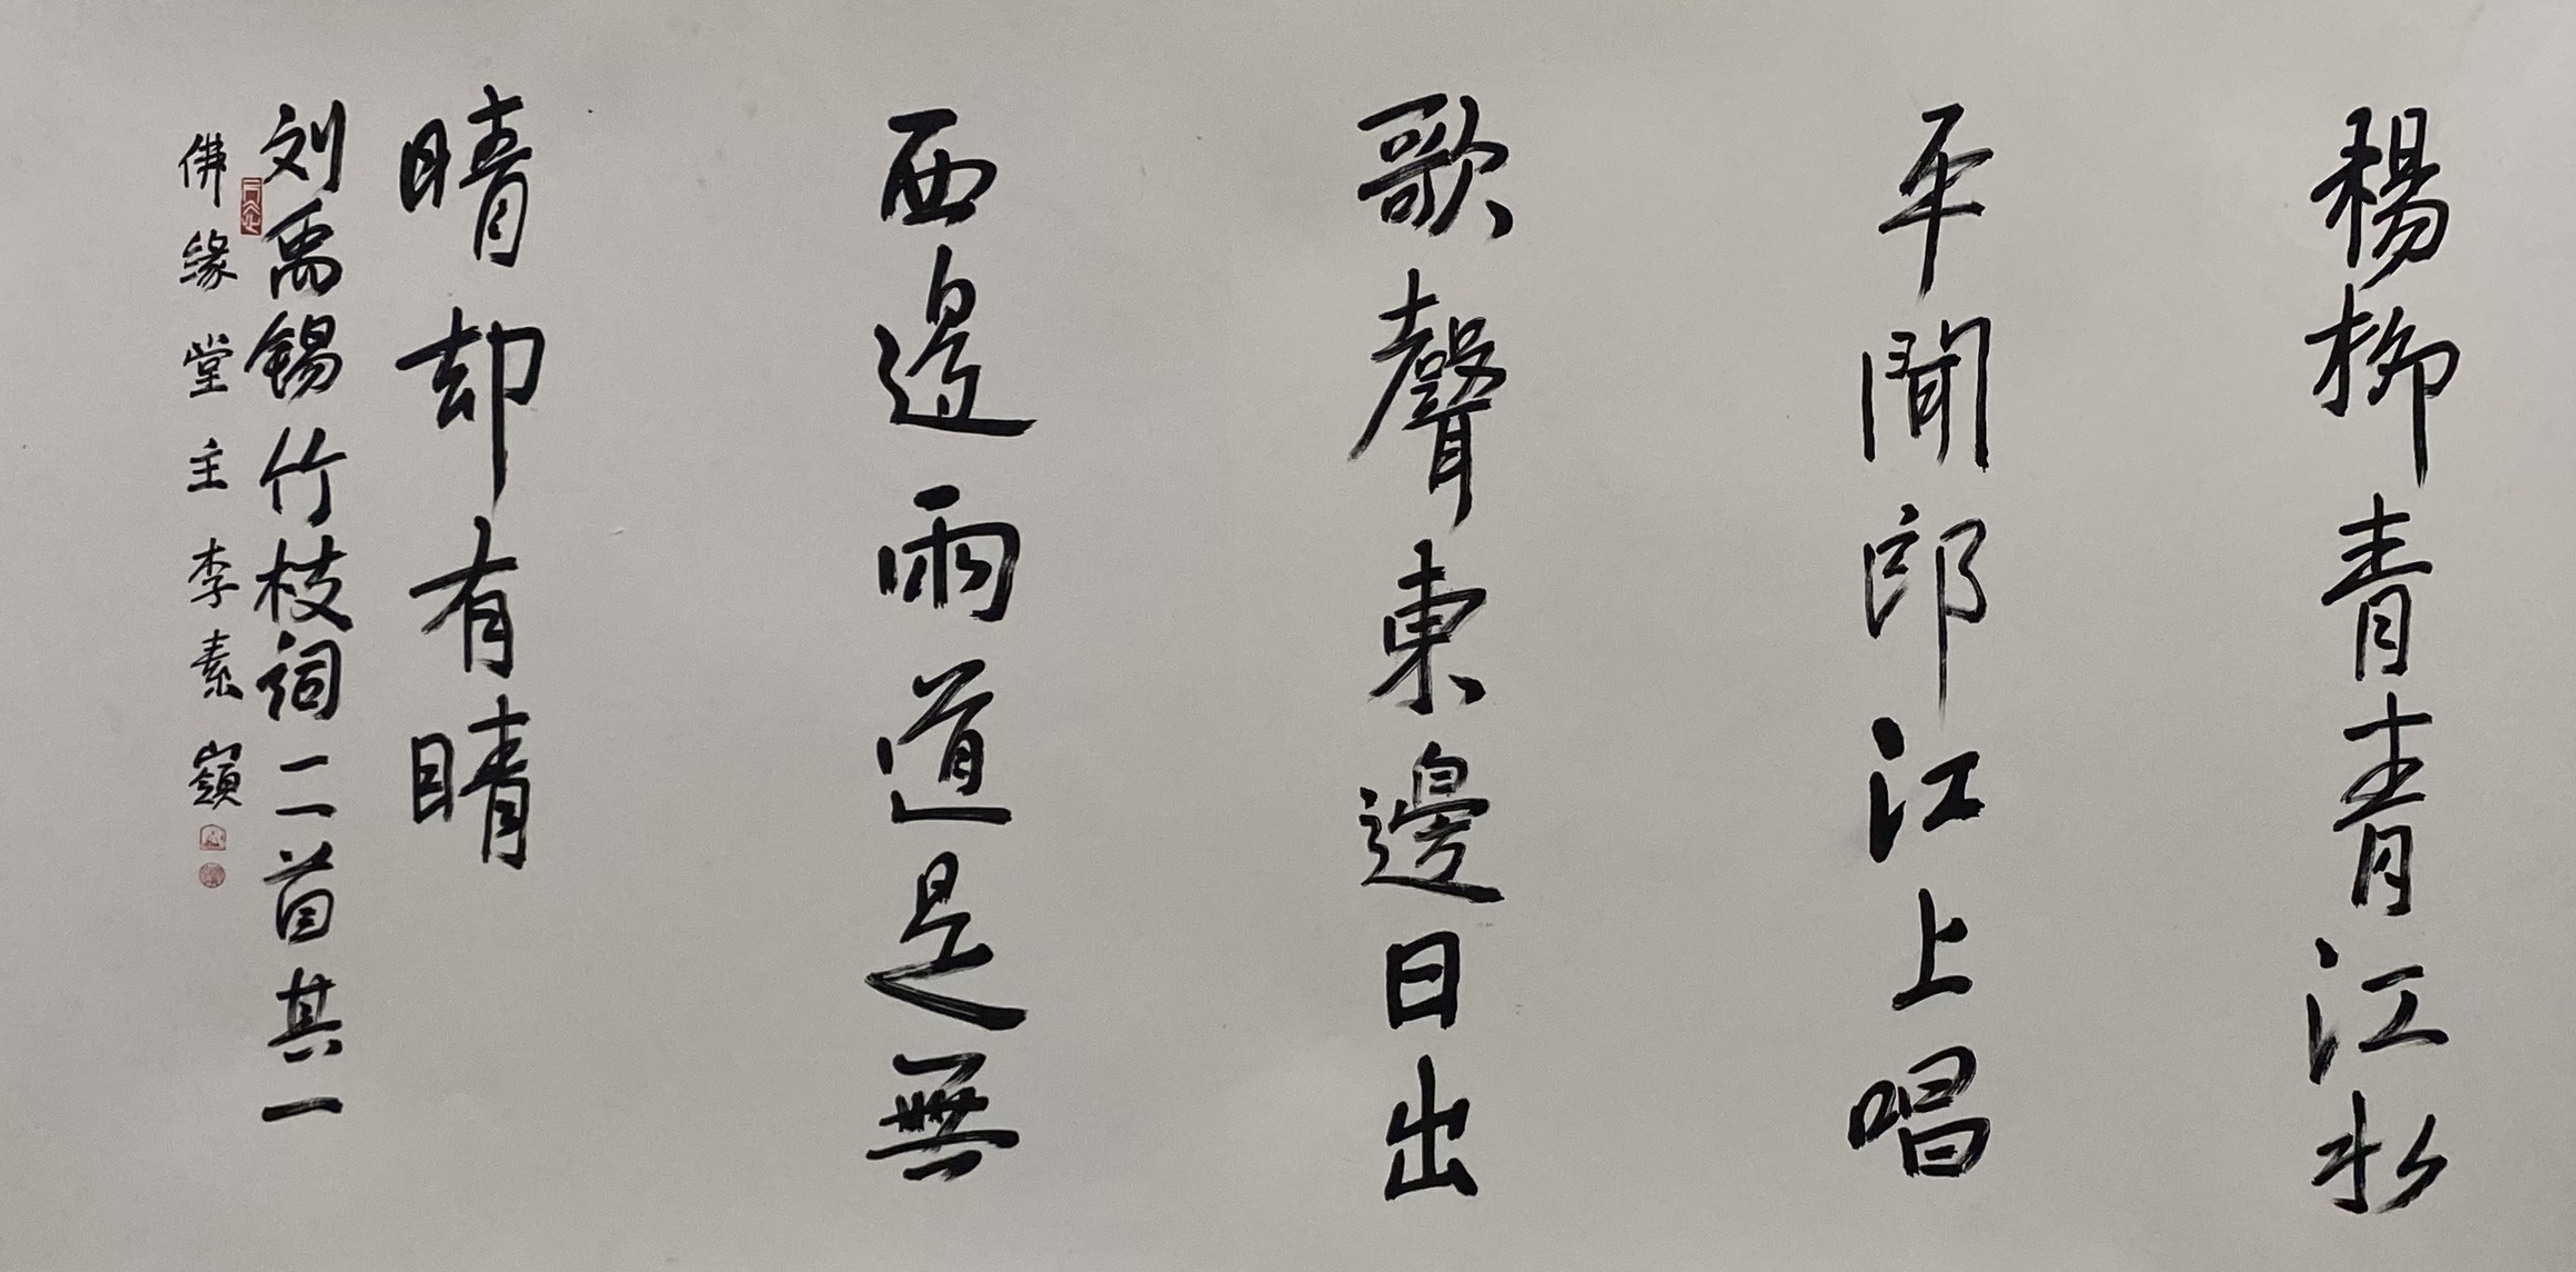 楊柳青青江水
平聞郎江上唱
歌聲東邊日出
西邊雨道是無
晴却有晴
刘禹锡竹枝词二首其一
佛缘堂主李素嶺